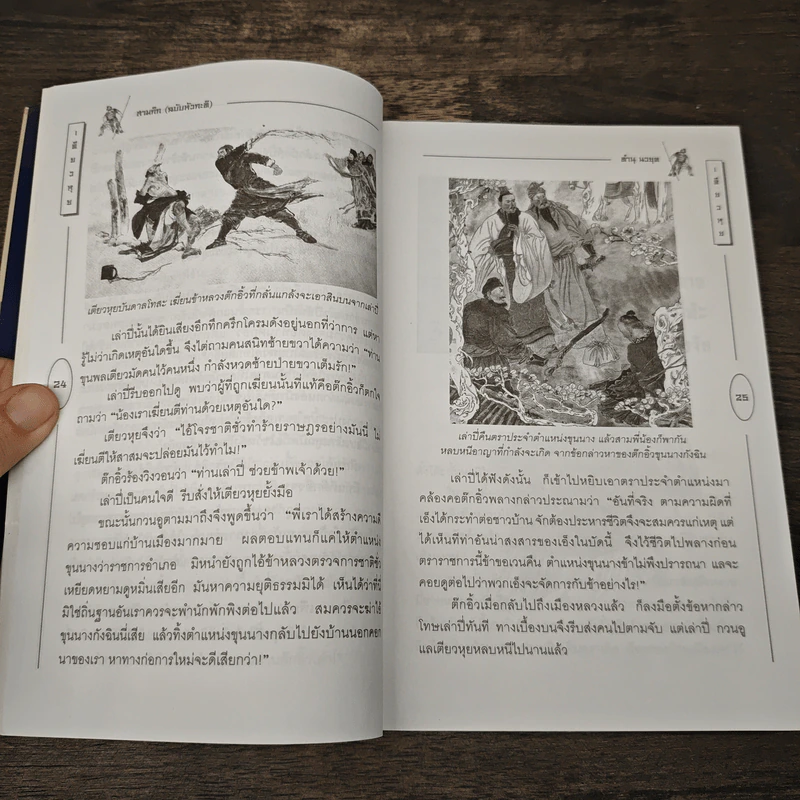 สามก๊ก (ฉบับหัวกะทิ)
เตียวหุย
เตียวหุยบันดาลโทสะ เฆี่ยนข้าหลวงต๊กอิ้วที่กลั่นแกล้งจะเอาสินบนจากเล่าปี่
เล่าปี่นั้นได้ยินเสียงอึกทึกครึกโครมดังอยู่นอกที่ว่าการ แต่หา
รู้ไม่ว่าเกิดเหตุอันใดขึ้น จึงไต่ถามคนสนิทซ้ายขวาได้ความว่า “ท่าน
ขุนพลเตียวมัดคนไว้คนหนึ่ง กำลังหวดซ้ายป่ายขวาเต็มรัก!”
เล่าปี่รีบออกไปดู พบว่าผู้ที่ถูกเฆี่ยนนั้นที่แท้คือต๊กอิ้วก็ตกใจ
ถามว่า “น้องเราเฆี่ยนตีท่านด้วยเหตุอันใด?”
เตียวหุยจึงว่า “ไอ้โจรชาติชั่วทำร้ายราษฎรอย่างมันนี่ ไม่
เฆี่ยนตีให้สาสมจะปล่อยมันไว้ทำไม!”
ต๊กอิ้วร้องวิงวอนว่า “ท่านเล่าปี่ ช่วยข้าพเจ้าด้วย!”
เล่าปี่เป็นคนใจดี รีบสั่งให้เตียวหุยยั้งมือ
ขณะนั้นกวนอูตามมาถึงจึงพูดขึ้นว่า “พี่เราได้สร้างความดี
ความชอบแก่บ้านเมืองมากมาย ผลตอบแทนก็แค่ให้ตำแหน่ง
ขุนนางว่าราชการอำเภอ มิหนำยังถูกไอ้ข้าหลวงตรวจการชาติชั่ว
เหยียดหยามดูหมิ่นเสียอีก มันหาความยุติธรรมมิได้ เห็นได้ว่าที่นี่
มิใช่ถิ่นฐานอันเราควรจะพำนักพักพิงต่อไปแล้ว สมควรจะฆ่าไอ้
ขุนนางกังฉินนี่เสีย แล้วทิ้งตำแหน่งขุนนางกลับไปยังบ้านนอกคอก
นาของเรา หาทางก่อการใหม่จะดีเสียกว่า!”
24
ลำนุ นวยุต
เตียวหุย
เล่าปี่คืนตราประจำตำแหน่งขุนนาง แล้วสามพี่น้องก็พากัน
หลบหนีอาญาที่กำลังจะเกิด จากข้อกล่าวหาของต๊กอิ้วขุนนางกังฉิน
เล่าปี่ได้ฟังดังนั้น ก็เข้าไปหยิบเอาตราประจำตำแหน่งมา
คล้องคอต๊กอิ้วพลางกล่าวประณามว่า “อันที่จริง ตามความผิดที่
เอ็งได้กระทำต่อชาวบ้าน จักต้องประหารชีวิตจึงจะสมควรแก่เหตุ แต่
ได้เห็นทีท่าอันน่าสงสารของเอ็งในบัดนี้ จึงไว้ชีวิตไปพลางก่อน
ตราราชการนี้ข้าขอเวนคืน ตำแหน่งขุนนางข้าไม่พึงปรารถนา แลจะ
คอยดูต่อไปว่าพวกเอ็งจะจัดการกับข้าอย่างไร!”
ต๊กอิ้วเมื่อกลับไปถึงเมืองหลวงแล้ว ก็ลงมือตั้งข้อหากล่าว
โทษเล่าปี่ทันที ทางเบื้องบนจึงรีบส่งคนไปตามจับ แต่เล่าปี่ กวนอู
แลเตียวหุยหลบหนีไปนานแล้ว
25